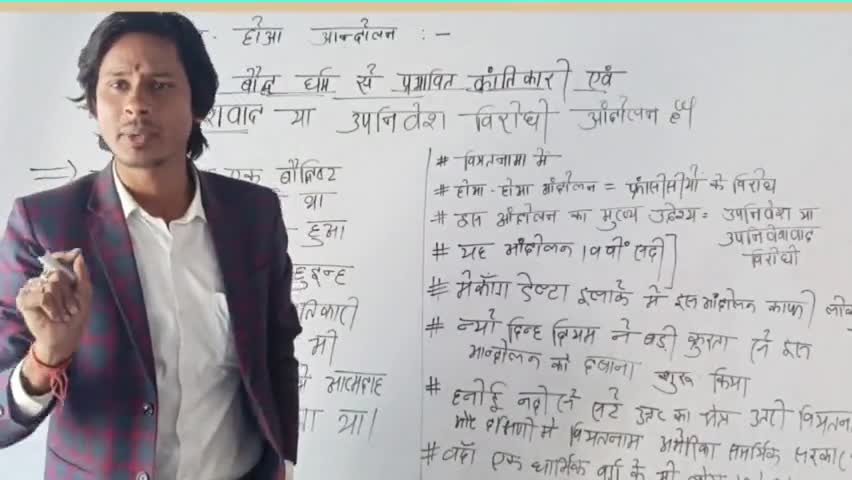 होआ आन्दोलन :-
बौद्ध धर्म से प्रभावित क्रांतिकारी एवं
वाद या उपनिवेश विरोधी आंदोलन है।
=> एक बौनिवर
था
हुआ
हुइन्ह
तिकारी
मी
आत्मदाह
था।
# वियतनामा में
# होमा-होमा आंदोलन = फ्रांसीसीयों के विरोध
# इस आंदोलन का मुख्य उद्देश्य = उपनिवेश या
उपनिवेशवाद
विरोधी
# यह आंदोलन 19वीं सदी
# मेकाँग डेल्टा इलाके में इस आंदोलन काफी
# न्यो दिन्ह दियम ने बडी क्रुरता से इस
आन्दोलन को दबाना शुरू किया
# हनोई नदी से सटे उत्तर का क्षेत्र उत्तरी वियतना
और दक्षिणी में वियतनाम अमेरिका समर्थिक सरकार
# वहाँ एक धार्मिक वर्ग के भी